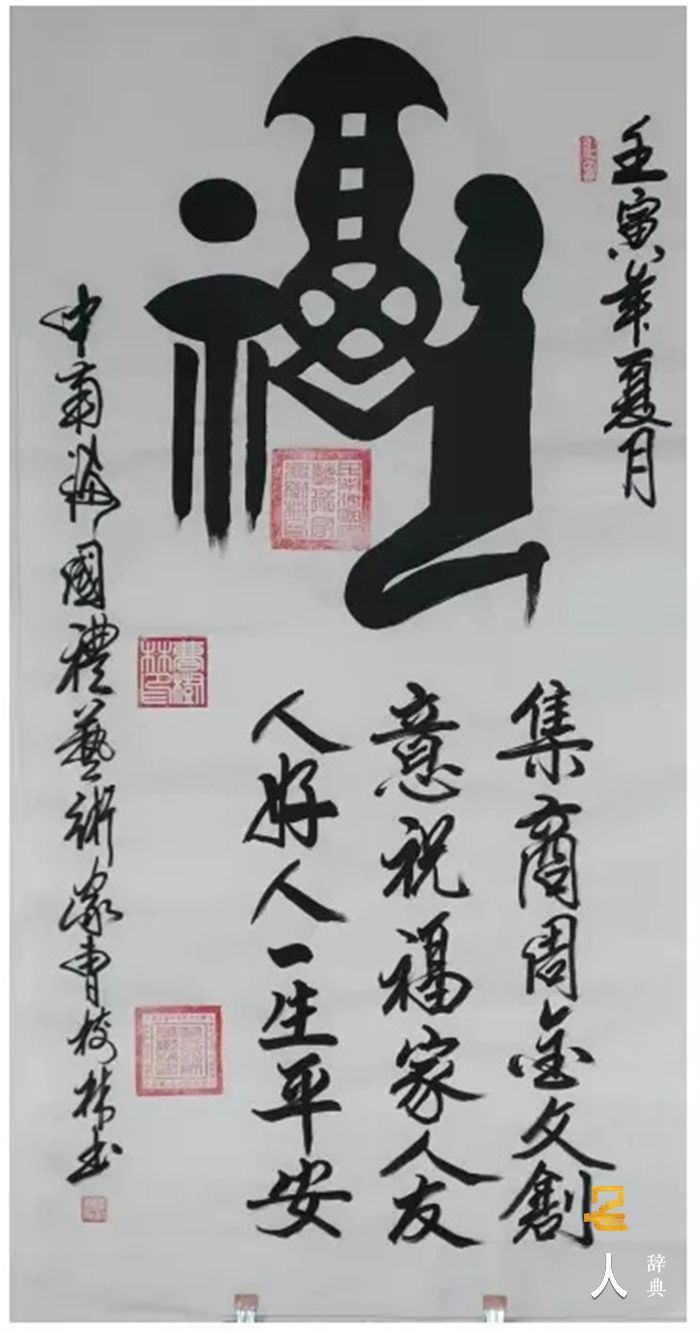 福
壬寅年夏月
集商周金文創
意祝福家人友
人好人一生平安
中南海國禮藝術家曹樹林书
曹樹林印
名人辞典